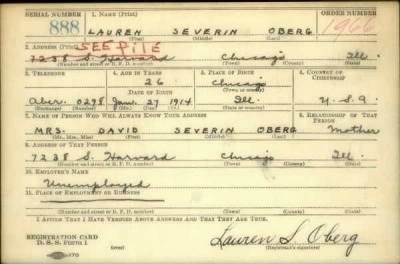 SERIAL NUMBER 1. NAME (Print) ORDER NUMBER
888 LAUREN SEVERIN OBERG 1966
(First) (Middle) (Last)
2. ADDRESS (Print) SEE FILE
7238 S. Harvard Chicago Ill
(Number and street or R. F. D. number) (Town) (County) (State)
3. TELEPHONE 4. AGE IN YEARS 5. PLACE OF BIRTH 6. COUNTRY OF CITIZENSHIP
26 Chicago
DATE OF BIRTH (Town or county)
Aber. 0298 Jan. 27 1914 Ill. U. S. A
(Exchange) (Number) (Mo.) (Day) (Yr.) (State or country)
7. NAME OF PERSON WHO WILL ALWAYS KNOW YOUR ADDRESS 8. RELATIONSHIP OF THAT PERSON
MRS. DAVID SEVERIN OBERG Mother
(Mr., Mrs., Miss) (First) (Middle) (Last)
9. ADDRESS OF THAT PERSON
7238 S. Harvard Chicago Ill.
(Number and street or R. F. D. number) (Town) (County) (State)
10. EMPLOYER'S NAME
Unemployed
11. PLACE OF EMPLOYMENT OR BUSINESS
(Number and street or R. F. D. number) (Town) (County) (State)
I AFFIRM THAT I HAVE VERIFIED ABOVE ANSWERS AND THAT THEY ARE TRUE.
REGISTRATION CARD
D. S. S. FORM 1 (over) Lauren S. Oberg
(Registrant's signature)